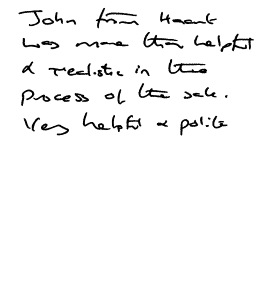 John from
was more than helpful
& realistic in the
process of the sale.
Very helpful & polite